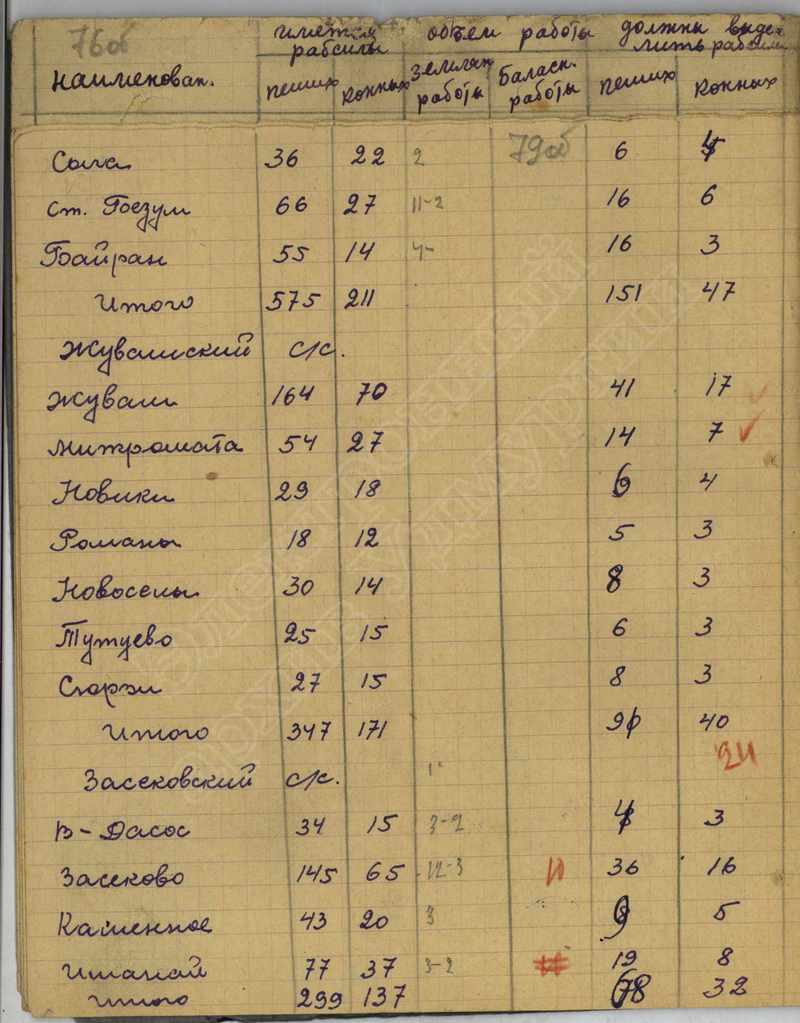 76об имеются рабсилы объем работы должны выде-лить рабсилы
наименован. пеших конных землян работы баласн. работы пеших конных
Сыга 36 22 2 79об 6
ст. Гоезум 66 27 11-2 16 6
Байран 55 14 4- 16 3
Итого 575 211 151 47
Жувамский с/с.
Жувам 164 70 41 17
54 27 14 7
Новики 29 18 4
Романы 18 12 5 3
Новоселы 30 14 8 3
Тутуево 25 15 6 3
27 15 8 3
Итого 347 171 40
24
Засековский с/с. 1
В-Дасос 34 15 3-2 3
Засеково 145 65 12-3 10 36 16
Каменное 43 20 3 5
77 37 3-2 19 8
итого 299 137 68 32